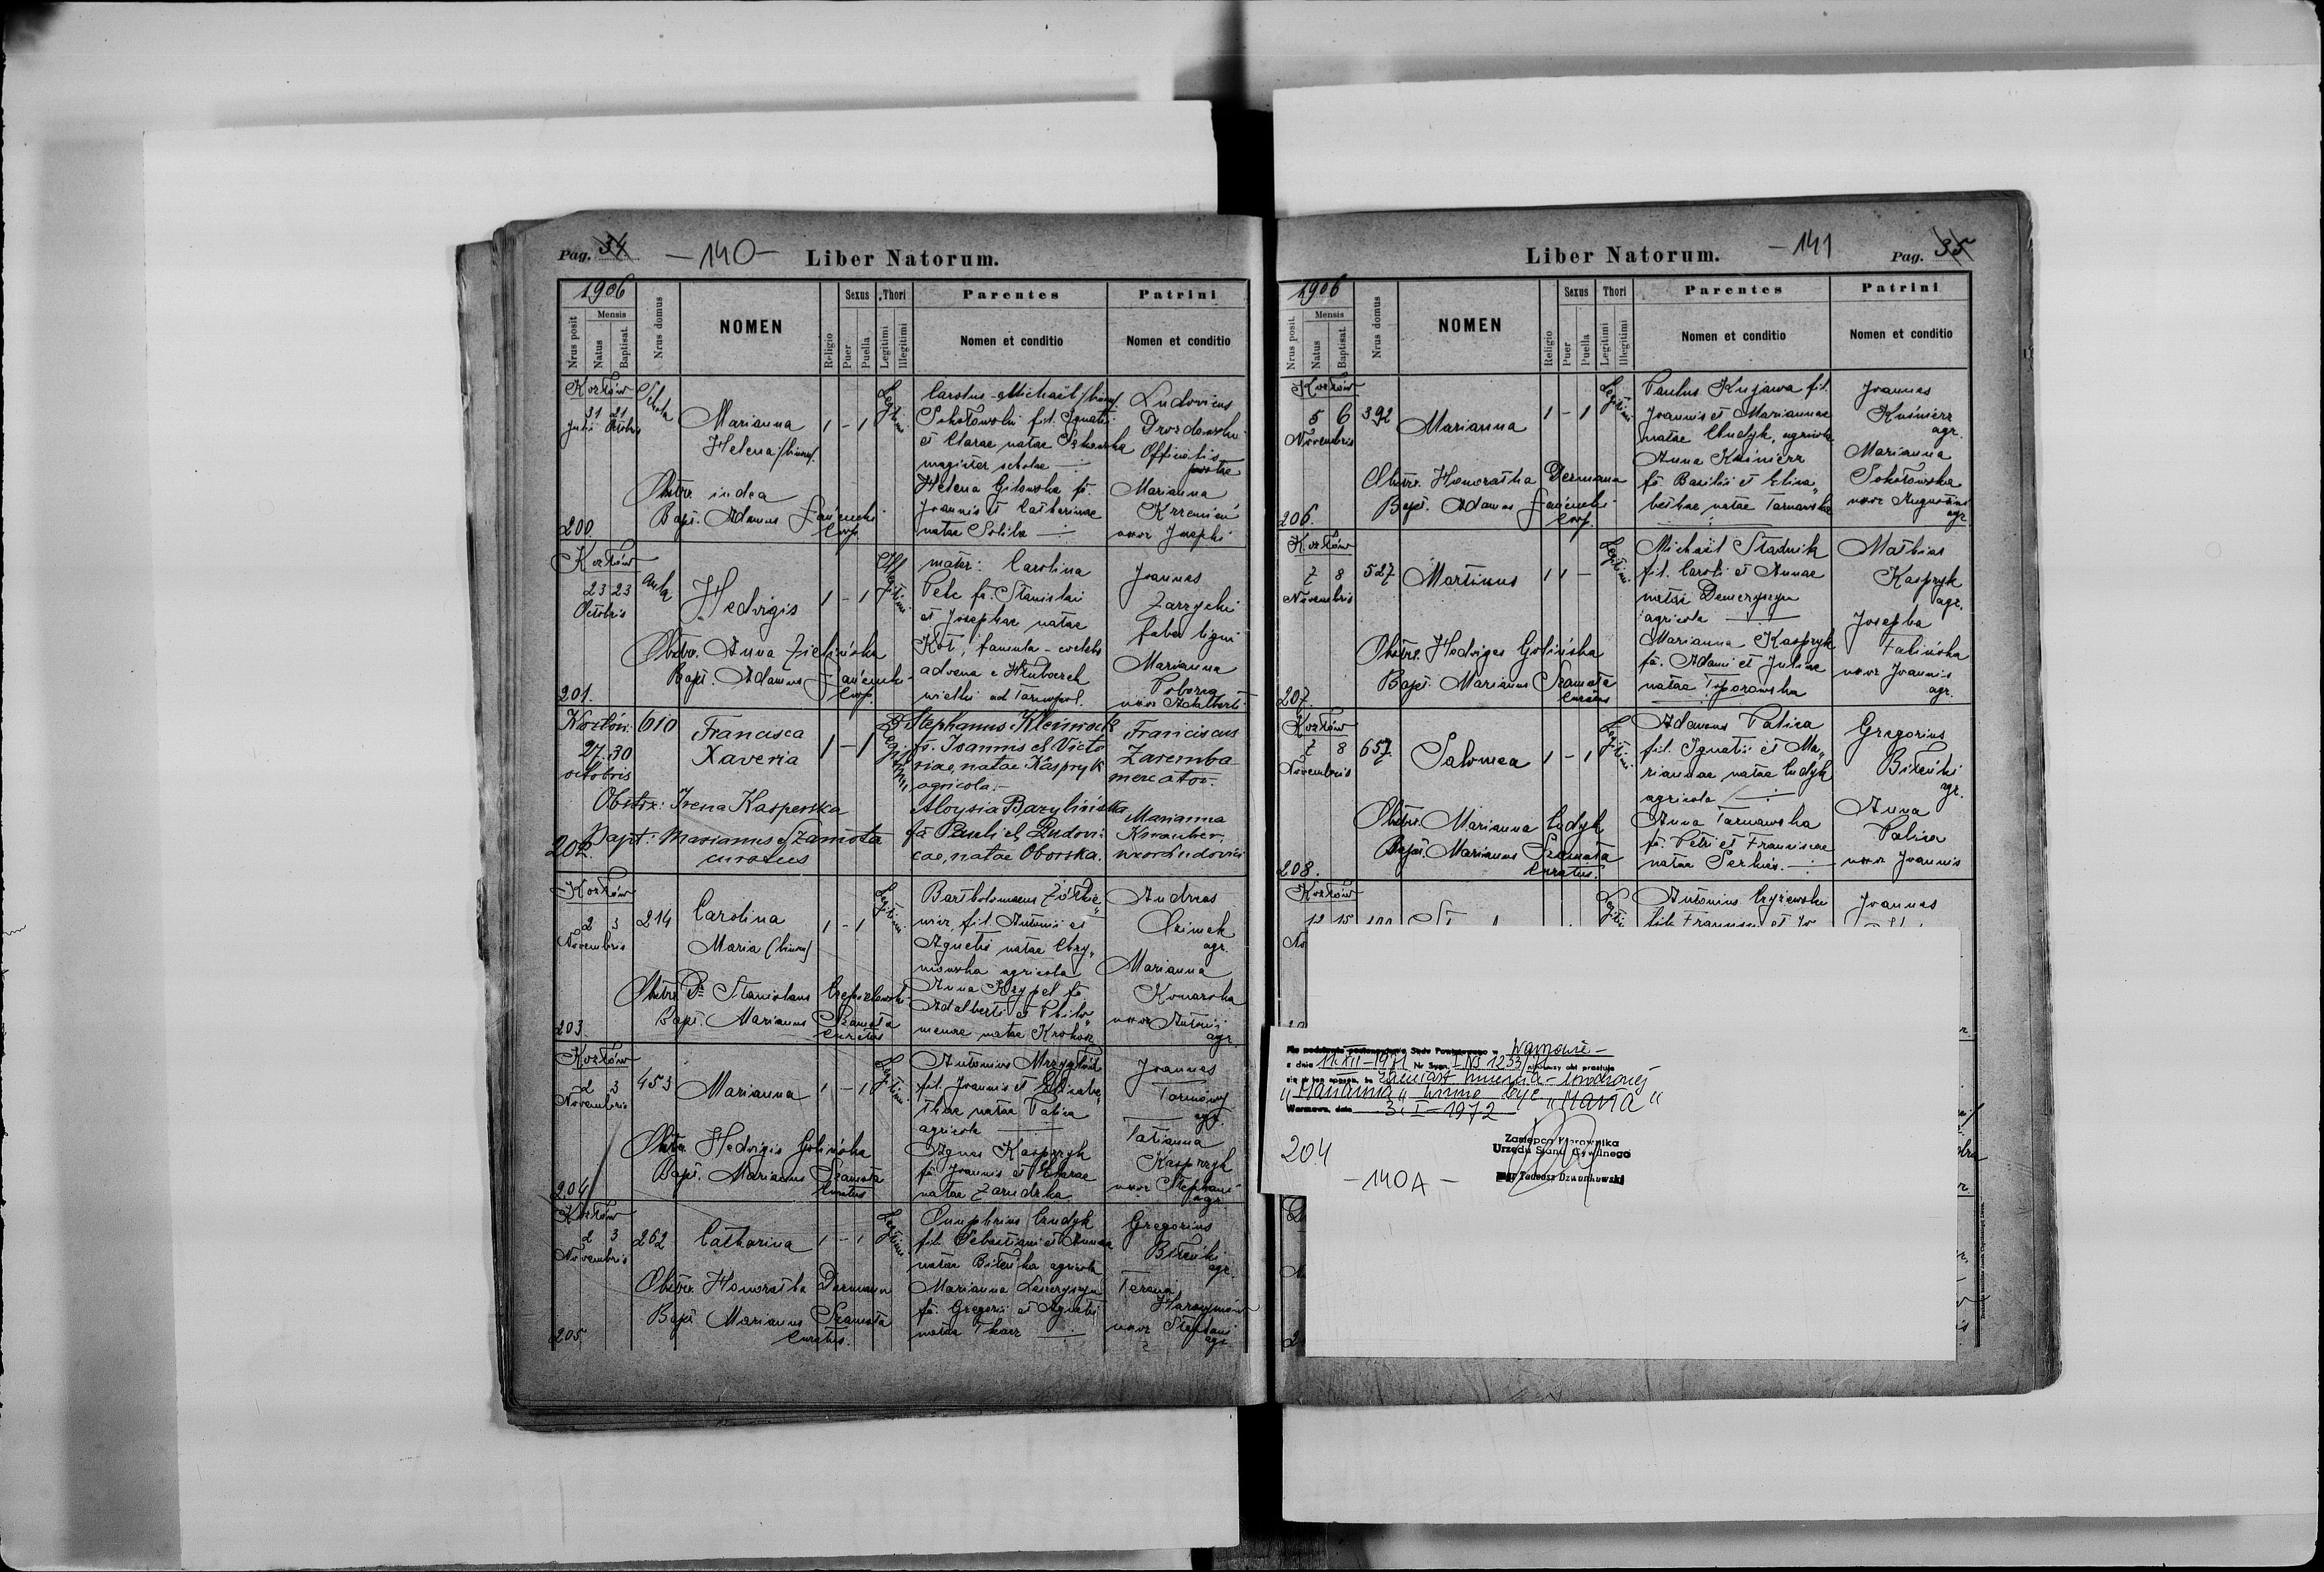 Pag. 34. - 140 - Liber Natorum.
1906
Nrus posit
Mensis
Natus
Baptisat.
Nrus domus
NOMEN
Religio
Sexus
Puer
Puella
Thori
Legitimi
Illegitimi
Parentes
Nomen et conditio
Patrini
Nomen et conditio
Kozłów
31 21
Julii Octobris
Schola
Marianna
Helena /binom/
1 - 1
Legitimi
Carolus-Michaël /binom/
Sokołowski fil. Ignatii
et Clarae natae
magister scholae
Helena Gilowska fa.
Joannis et Catharinae
natae Solila
Ludovicus
Drozdowski
Officialis
Marianna
Krzemień
uxor Josephi
Obstr. indea
Bapt. Adamus Łańcucki
Coop.
200.
Kozłów
23 23
Octobris
Hedvigis
1 - 1
Illegitimi
mater: Carolina
Pelc fa. Stanislai
et Josephae natae
Kot, famula - coelebs
advena e Hłuboczek
wielki ad Tarnopol.
Joannes
Zarzycki
faber ligni
Marianna
uxor Adalberti
Obstr. Anna Zielińska
Bapt. Adamus Łańcucki
Coop.
201.
Kozłów.
27. 30
octobris
610
Francisca
Xaveria
1 - 1
Legitimi
Stephanus Kleinrock
f. Joannis et Victo
riae, natae Kaspryk
agricola.-
Aloysia Bazylińska
fa Pauli et Ludovi:
cae, natae Oborska.
Franciscus
Zaremba
mercator.
Marianna
uxor Ludovici
Obstr: Irena Kasperska
Bapt: Marianus Szamota
curatus
202.
Kozłów
2 3
Novembris
214
Carolina
Maria (binom)
1 - 1
Legitimi
Bartholomaeus Żółkie„
wicz, fil. Antonii et
Agnetis natae Chrzy„
agricola
Anna Krypel fa
Adalberti et Philo„
menae natae Krokosz
Andreas
Czimek
agr.
Marianna
Komarska
uxor Antonii
agr.
Obstr. Dr Stanislaus
Bapt. Marianus Szamota
Curatus
203.
Kozłów
2 3
Novembris
453
Marianna
1 - 1
Legitimi
Antonius Mrzygłód
fil. Joannis et Elisabe„
thae natae Palica
agricola
Agnes Kasprzyk
fa. Joannis et Clarae
natae Zarudzka
Joannes
Tarnowy
agr.
Tatianna
Kasprzyk
uxor Stephani
agr.
Obstr. Hedvigis Golińska
Bapt. Marianus Szamota
Curatus
204
Kozłów
2 3
Novembris
262
Catharina
1 - 1
Legitimi
Onuphrius Cudyk
fil. Sebastiani et Annae
natae Bileńka agricola
Marianna Demeryszyn
fa. Gregorii et Agnetis
natae Tkacz
Gregorius
Bileńki
agr.
uxor Stephani
agr.
Obstr. Honoratha Dermann
Bapt Marianus Szamota
Curatus.
205
Liber Natorum. - 141 Pag. 35
1906
Nrus posit.
Mensis
Natus
Baptisat.
Nrus domus
NOMEN
Religio
Sexus
Puer
Puella
Thori
Legitimi
Illegitimi
Parentes
Nomen et conditio
Patrini
Nomen et conditio
Kozłów
5 6
Novembris
392
Marianna
1 - 1
Legitimi
Paulus Kujawa fil.
Joannis et Mariannae
natae Cudyk, agricola
Anna Kuśnierz
fa Basilii et Elisa„
bethae natae Tarnawska
Joannes
Kuśnierz
agr.
Marianna
Sokołowska
uxor Augustini
agr
Obstr. Honoratha Dermann
Bapt. Adamus Łańcucki
Coop.
206.
Kozłów
7 8
Novembris
527
Martinus
1 1 -
Legitimi
Michaël Stadnik
fil. Caroli et Annae
natae Demeryszyn
agricola
Marianna Kasprzyk
fa. Adami et Juliae
natae Toporowska
Mathias
Kasprzyk
agr.
Josepha
Falińska
uxor Joannis
agr.
Obstr. Hedviges Golińska
Bapt. Marianus Szamota
Curatus
207.
Kozłów
7 8
Novembris
657
Salomea
1 - 1
Legitimi
Adamus Palica
fil. Ignatii et Ma„
riannae natae Cudyk
agricola
Anna Tarnawska
fa. Petri et Franciscae
natae Serkies.
Gregorius
Bileńki
agr.
Anna
Palica
uxor Joannis
Obstr. Marianna Cudyk
Bapt. Marianus Szamota
Curatus.
208.
Kozłów
12 15
Antonius Czyżewski
Joannes
Na podstawie postanowienia Sądu Powiatowego w Warszawie -
z dnia 11.XII-1971 Nr Sygn. I Ns 1253/71 niniejszy akt prostuje
się w ten sposób, że zamiast imienia - noworodzonej
„Marianna„ winno być „Maria“
Warszawa, dnia 3. I - 1972
Zastępca Kierownika
Urzędu Stanu Cywilnego
mgr Tadeusz Dzwonkowski
204
- 140A -